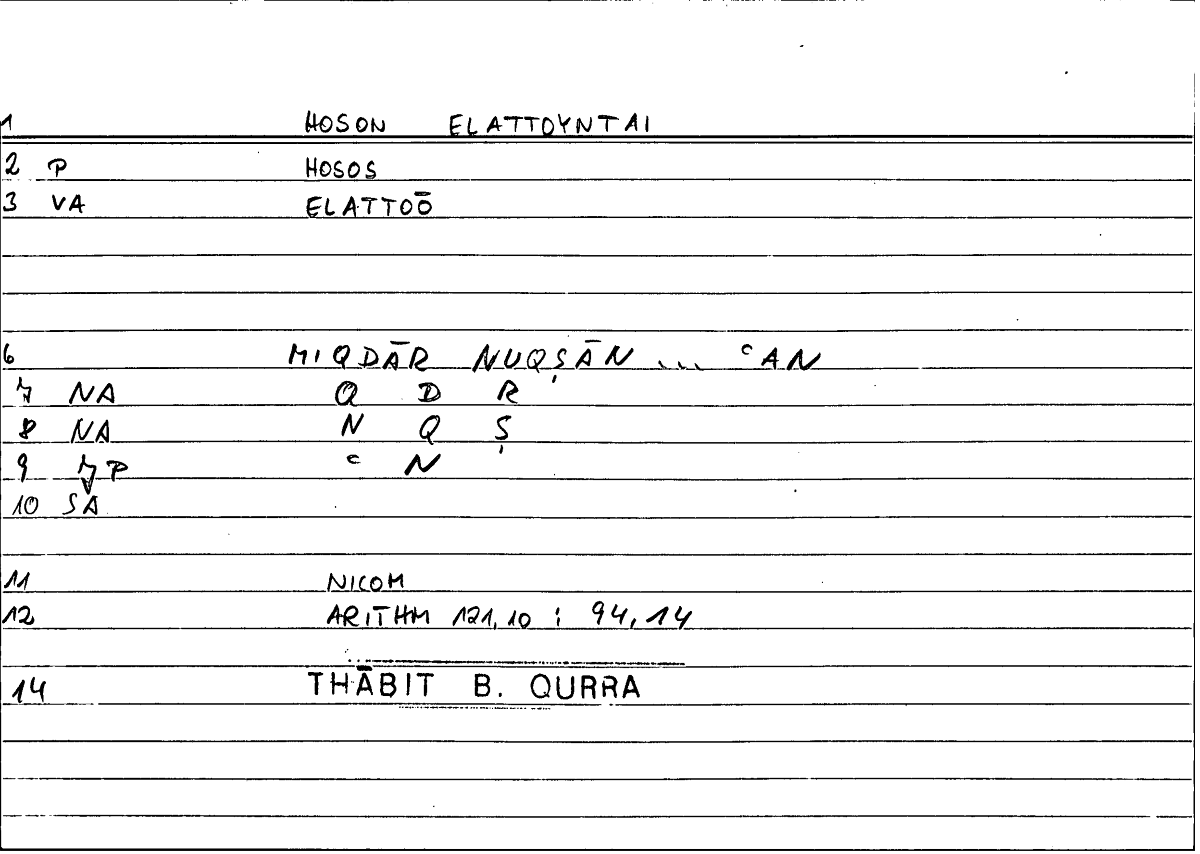 1 HOSON ELATTOYNTAI
2 P HOSOS
3 VA ELATTOŌ
6 MIQDĀR NUQṢĀN ... ᶜAN
7 NA Q D R
8 NA N Q Ṣ
9 P ᶜ N
10 SA
11 NICOM
12 ARITHM 121,10 ; 94,14
14 THĀBIT B. QURRA